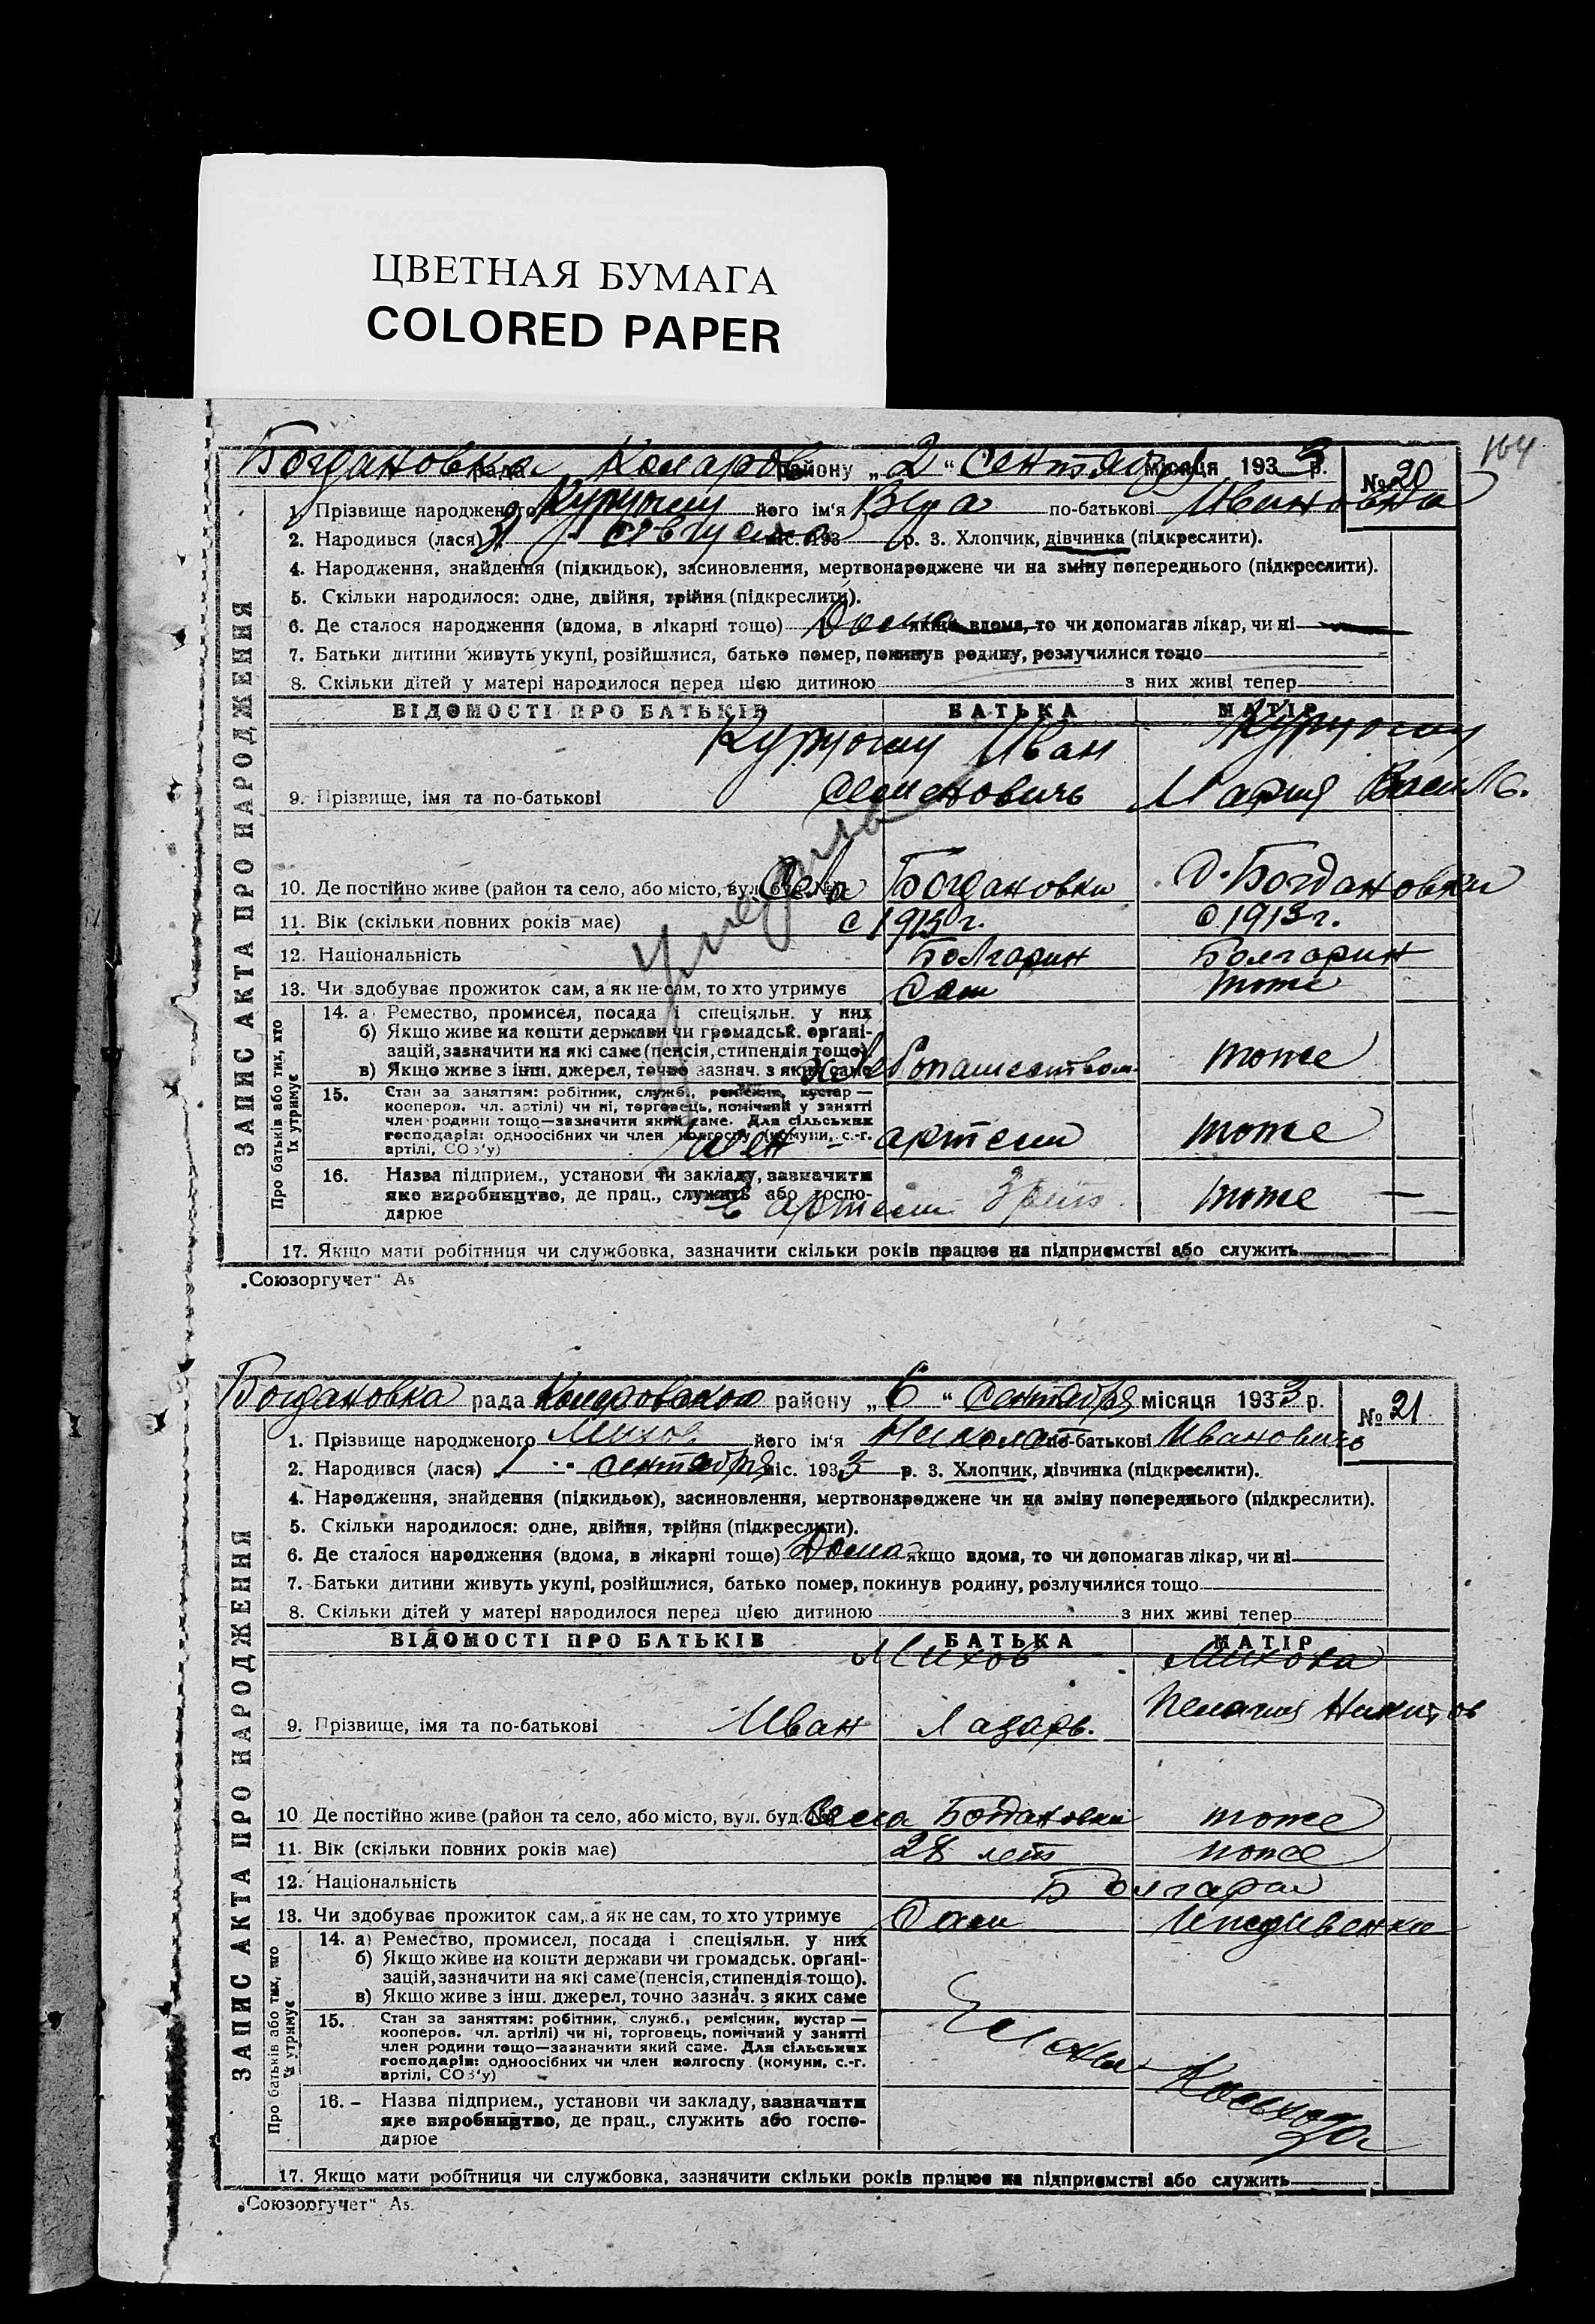 ЦВЕТНАЯ БУМАГА
COLORED PAPER
164
Богдановка рада Коларов району „2“ Сентября місяця 1933 р.
№ 20
1. Прізвище народженого його ім'я Вера по-батькові Ивановна
2. Народився (лася) августа міс. 193 р. 3. Хлопчик, дівчинка (підкреслити).
4. Народження, знайдення (підкидьок), засиновлення, мертвонароджене чи на зміну попереднього (підкреслити).
5. Скільки народилося: одне, двійня, трійня (підкреслити).
6. Де сталося народження (вдома, в лікарні тощо) Дома якщо вдома, то чи допомагав лікар, чи ні
7. Батьки дитини живуть укупі, розійшлися, батько помер, покинув родину, розлучилися тощо
8. Скільки дітей у матері народилося перед цією дитиною з них живі тепер
ЗАПИС АКТА ПРО НАРОДЖЕННЯ
ВІДОМОСТІ ПРО БАТЬКІВ БАТЬКА МАТІР
Иван
9. Прізвище, імя та по-батькові Семеновичь Мария Василь.
умерла
10. Де постійно живе (район та село, або місто, вул. буд. №) Села Богдановки С. Богдановки
11. Вік (скільки повних років має) с 1913 г.
12. Національність Болгарин Болгарин
13. Чи здобуває прожиток сам, а як не сам, то хто утримує Сам тоже
Про батьків або тих, хто їх утримує
14. а) Ремество, промисел, посада і спеціяльн. у них
б) Якщо живе на кошти держави чи громадськ. органі-
зацій, зазначити на які саме (пенсія, стипендія тощо).
в) Якщо живе з інш. джерел, точно зазнач. з яких саме хлебопашеством тоже
15. Стан за заняттям: робітник, служб., ремісник, кустар —
кооперов. чл. артілі) чи ні, торговець, помічний у занятті
член родини тощо—зазначити який саме. Для сільських
господарів: одноосібних чи член колгоспу (комуни, с.-г.
артілі, СОЗ'у) член артели тоже
16. Назва підприєм., установи чи закладу, зазначити
яке виробництво, де прац., служить або госпо-
дарюе в артели тоже
17. Якщо мати робітниця чи службовка, зазначити скільки років працює на підприємстві або служить
„Союзоргучет" А5
Богдановка рада Коларовского району „6“ Сентября місяця 1933 р.
№ 21
1. Прізвище народженого Михов його ім'я Николай по-батькові Ивановичь
2. Народився (лася) 1 сентября міс. 1933 р. 3. Хлопчик, дівчинка (підкреслити).
4. Народження, знайдення (підкидьок), засиновлення, мертвонароджене чи на зміну попереднього (підкреслити).
5. Скільки народилося: одне, двійня, трійня (підкреслити).
6. Де сталося народження (вдома, в лікарні тощо) Дома якщо вдома, то чи допомагав лікар, чи ні
7. Батьки дитини живуть укупі, розійшлися, батько помер, покинув родину, розлучилися тощо
8. Скільки дітей у матері народилося перед цією дитиною з них живі тепер
ЗАПИС АКТА ПРО НАРОДЖЕННЯ
ВІДОМОСТІ ПРО БАТЬКІВ БАТЬКА МАТІР
Михов Михова
9. Прізвище, імя та по-батькові Иван Лазарь. Пелагия Никитов
10 Де постійно живе (район та село, або місто, вул. буд. №) Села Богдановки тоже
11. Вік (скільки повних років має) 28 лет тоже
12. Національність Болгары
13. Чи здобуває прожиток сам, а як не сам, то хто утримує Сам Иждивенка
Про батьків або тих, що їх утримує
14. а) Ремество, промисел, посада і спеціяльн. у них
б) Якщо живе на кошти держави чи громадськ. органі-
зацій, зазначити на які саме (пенсія, стипендія тощо).
в) Якщо живе з інш. джерел, точно зазнач. з яких саме
15. Стан за заняттям: робітник, служб., ремісник, кустар —
кооперов. чл. артілі) чи ні, торговець, помічний у занятті
член родини тощо—зазначити який саме. Для сільських
господарів: одноосібних чи член колгоспу (комуни, с.-г.
артілі, СОЗ'у)
Члены Колхоза
16. – Назва підприєм., установи чи закладу, зазначити
яке виробництво, де прац., служить або госпо-
дарюе
17. Якщо мати робітниця чи службовка, зазначити скільки років працює на підприємстві або служить
„Союзоргучет" А5.